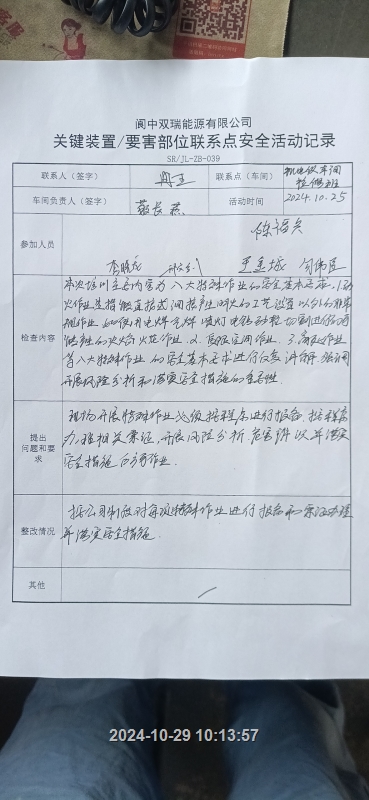 阆中双瑞能源有限公司
关键装置/要害部位联系点安全活动记录
SR/JL-ZB-039
联系人（签字）
联系点（车间） 机电仪车间
检修班
车间负责人（签字） 活动时间 2024.10.25
参加人员
检查内容
本次培训主要内容为八大特殊作业的安全基本要求，1.动
火作业是指能直接或间接产生明火的工艺设置以外的非常
规作业 如使用电焊气焊 喷灯 电钻砂轮 切割进行的可
能产生的火焰火花作业. 2.受限空间作业. 3.高处作业
等八大特殊作业的安全基本要求进行仪器讲解. 强调
开展风险分析和落实安全措施的重要性.
提出
问题和要
求
现场开展特殊作业必须按程序进行报备. 按程序
办理相关票证. 开展风险分析. 危害辨识并落实
安全措施方可作业.
整改情况
按公司制度对每项特殊作业进行报备和票证办理
并落实安全措施.
其他
2024-10-29 10:13:57